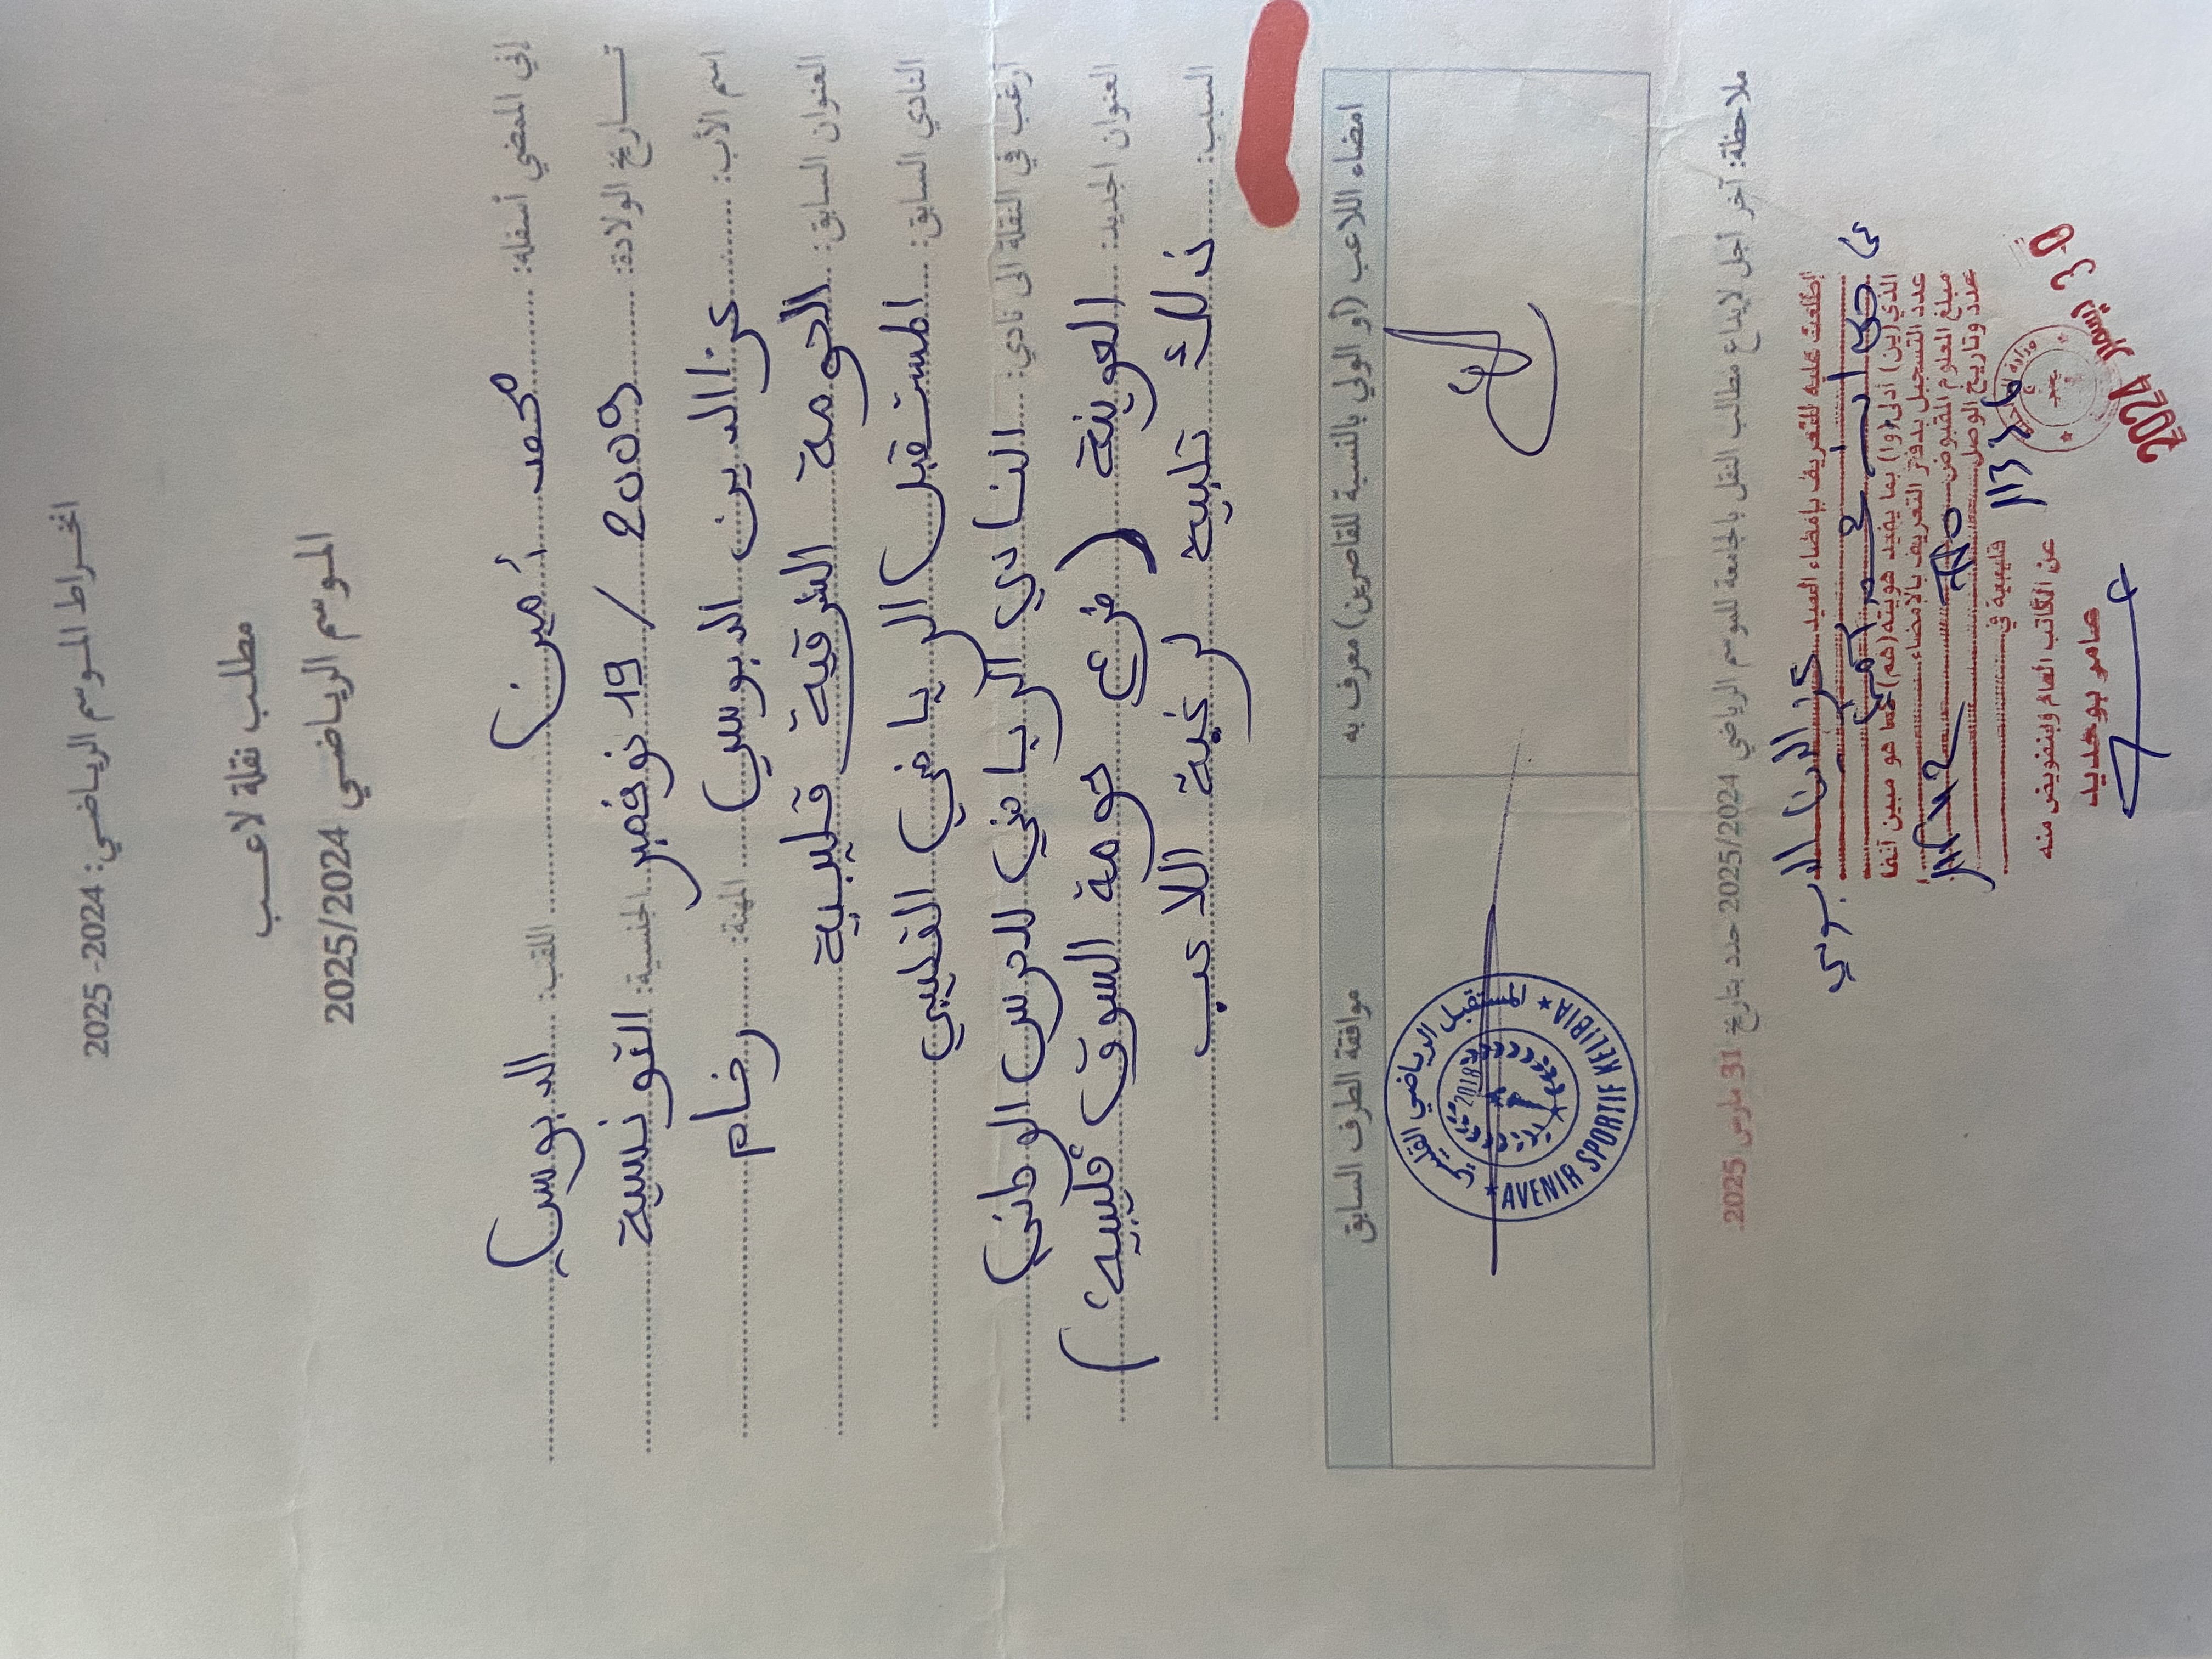 انخراط الموسم الرياضي: 2024- 2025
مطلب نقلة لاعب
الموسم الرياضي 2025/2024
إني الممضي أسفله: محمد أمين اللقب: الدبوسي
تاريخ الولادة: 19 نوفمبر / 2009 الجنسية: التونسية
اسم الأب: عز الدين الدبوسي المهنة: رخام
العنوان السابق: الحومة الشرقية قليبية
النادي السابق: المستقبل الرياضي القليبي
أرغب في النقلة الى نادي: النادي الرياضي للحرس الوطني
العنوان الجديد: العوينة (فرع حومة السوق قليبية)
السبب: ذلك تلبية لرغبة اللاعب
امضاء اللاعب (أو الولي بالنسبة للقاصرين) معرف به
موافقة الطرف السابق
المستقبل الرياضي القليبي
2018
AVENIR SPORTIF KELIBIA
ملاحظة: آخر أجل لإيداع مطالب النقل بالجامعة للموسم الرياضي 2025/2024 حدد بتاريخ 31 مارس 2025.
إطلعت عليه للتعريف بإمضاء السيد عز الدين الدبوسي
الذي(ين) أدلى(وا) بما يفيد هويته(هم) كما هو مبين آنفا
عدد التسجيل بدفتر التعريف بالامضاء
مبلغ المعلوم المقبوض
عدد وتاريخ الوصل
قليبية في
30 ديسمبر 2024
عن الكاتب العام وبتفويض منه